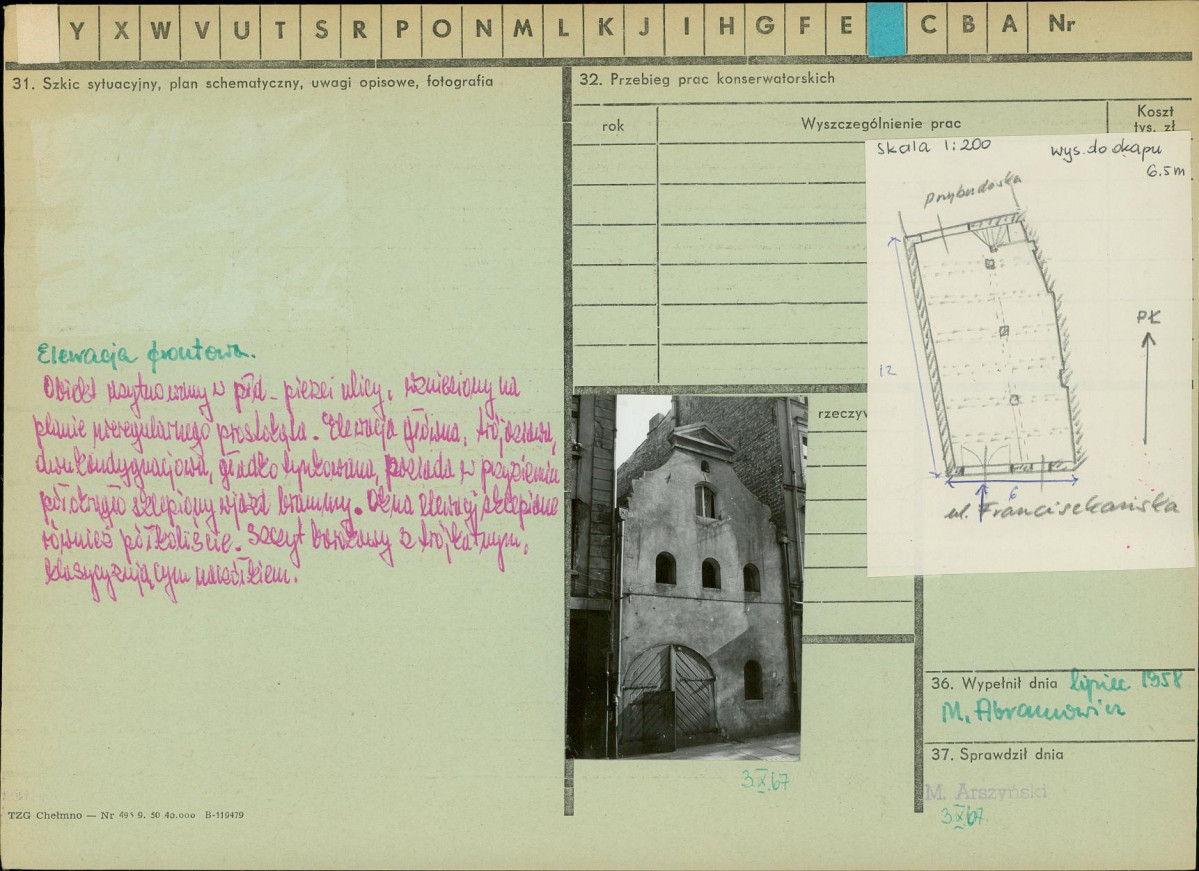 Y X W V U T S R P O N M L K J I H G F E C B A Nr
31. Szkic sytuacyjny, plan schematyczny, uwagi opisowe, fotografia
Elewacja frontowa.
Obiekt usytuowany w płd. pierzei ulicy, wzniesiony na
planie nieregularnego prostokąta. Elewacja główna, trójosiowa,
dwukondygnacjowa, gładko tynkowana, posiada w przyziemiu
półokrągło sklepiony wjazd bramny. Okna elewacji sklepione
również półkoliście. Szczyt barokowy z trójkątnym,
klasycyzującym naczółkiem.
TZG Chełmno — Nr 49 9. 50 40.000 B-119479
32. Przebieg prac konserwatorskich
rok
Wyszczególnienie prac
Koszt
tys. zł
skala 1:200
wys. do okapu
6.5 m
przybudówka
PŁ
12
6
ul. Franciszkańska
rzeczyw
3.X.67
36. Wypełnił dnia lipiec 1958
M. Abramowicz
37. Sprawdził dnia
M. Arszyński
3.X.67